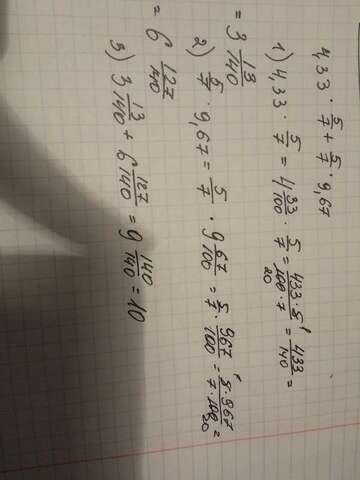 4,33 · 5/7 + 5/7 · 9,67
1) 4,33 · 5/7 = 4 33/100 · 5/7 = 433 · 5 1/100 20 · 7 = 433/140 =
= 3 13/140
2) 5/7 · 9,67 = 5/7 · 9 67/100 = 5/7 · 967/100 = 1 5 · 967/7 · 100 20 =
= 6 127/140
3) 3 13/140 + 6 127/140 = 9 140/140 = 10